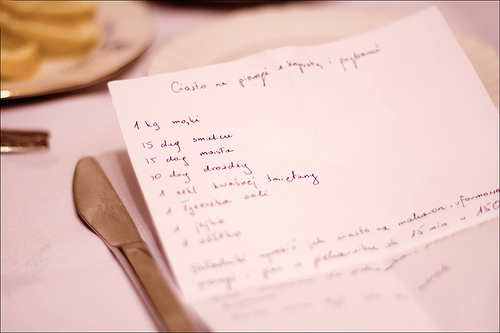 Ciasto na pierogi z kapustą i
1 kg mąki
15 dag smalcu
15 dag masła
10 dag drożdży
1 szkl kwaśnej śmietany
1 łyżeczka soli
1 jajko
1 żółtko
składniki wyrobić jak ciasto na makaron, uformować
pierogi i piec w piekarniku ok 15 min w 150